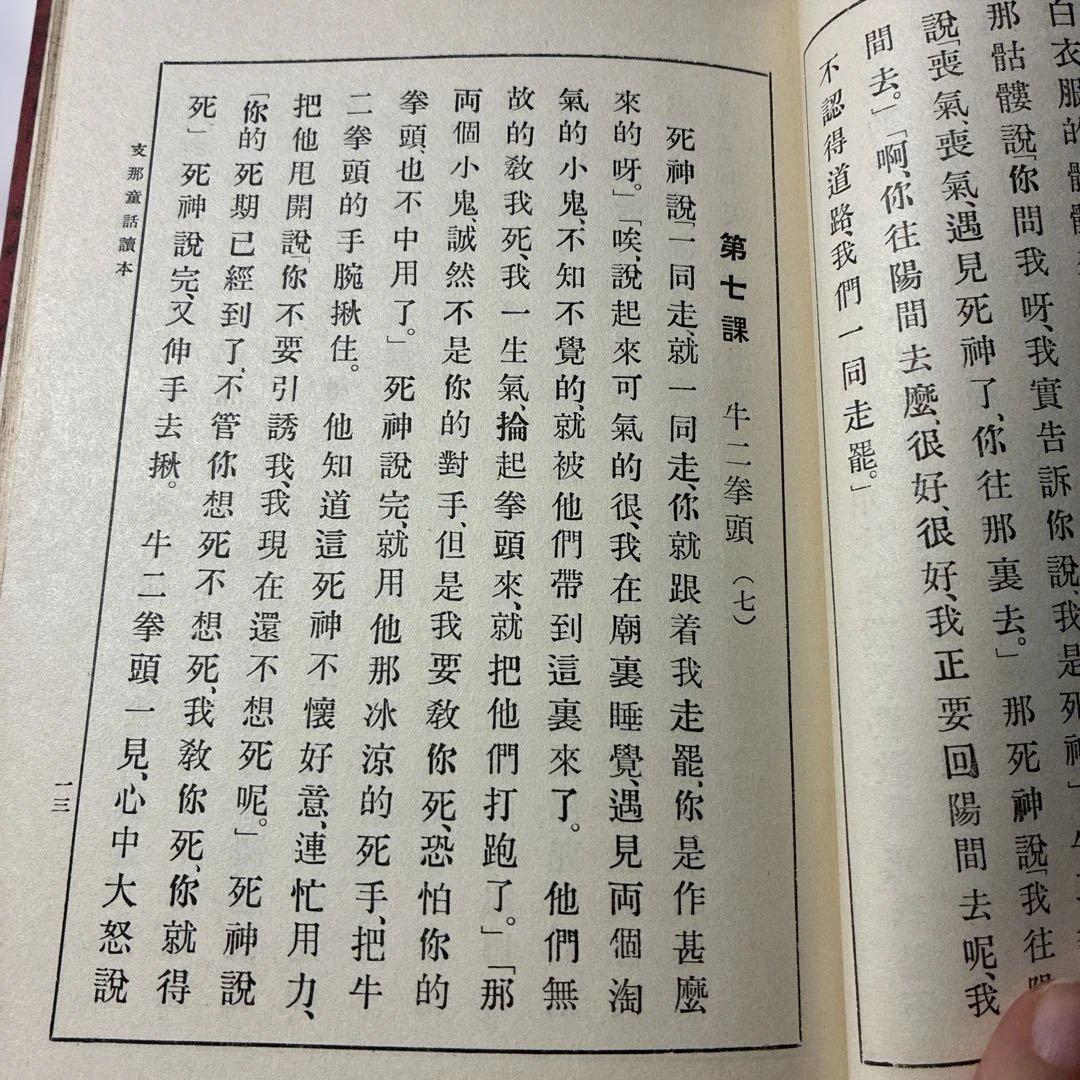 白衣服的
那骷髏說「你問我呀、我實告訴你說、我是死神」
說「喪氣、喪氣、遇見死神了、你往那裏去。」　那死神說「我往陽
間去。」「啊、你往陽間去麼、很好、很好、我正要回陽間去呢、我
不認得道路、我們一同走罷。」
第七課　牛二拳頭（七）
死神說「一同走、就一同走、你就跟着我走罷、你是作甚麼
來的呀。」「唉、說起來可氣的很、我在廟裏睡覺、遇見両個淘
氣的小鬼、不知不覺的、就被他們帶到這裏來了。　他們無
故的教我死、我一生氣、掄起拳頭來、就把他們打跑了。」「那
両個小鬼、誠然不是你的對手、但是我要教你死、恐怕你的
拳頭、也不中用了。」　死神說完、就用他那冰涼的死手、把牛
二拳頭的手腕揪住。　他知道這死神不懷好意、連忙用力、
把他甩開說「你不要引誘我、我現在還不想死呢。」　死神說
「你的死期已經到了、不管你想死不想死、我教你死、你就得
死」　死神說完、又伸手去揪。　牛二拳頭一見、心中大怒說
支那童話讀本
一三